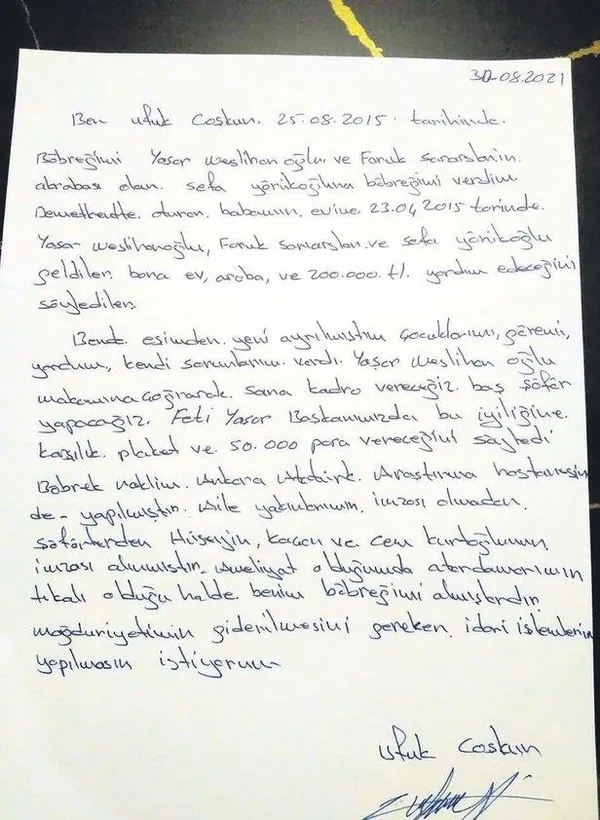 30.08.2021
Ben ufuk Coşkun. 25.08.2015. tarihinde.
Böbreğimi Yaşar weslihan oğlu ve Faruk sararslanin.
akrabası olan. sefa yörükoğluna böbreğimi verdim
Demetkentte. oturan. babamın. evine 23.04.2015 tarinde.
Yaşar weslihanoğlu, Faruk sararslan.ve sefa yörükoğlu
geldiler bana ev, araba, ve 200.000.tl. yardım edeceğini
söylediler.
Bende. eşimden. yeni ayrılmıştım çocuklarımı, göremi,
yordum, kendi sorunlarım. vardı. Yaşar weslihan oğlu
makamına çağırarak. sana kadro vereceğiz. baş şöför
yapacağız. Feti Yaşar Başkanımızda bu iyiliğine.
karşılık. plaket ve. 50.000 para vereceğini söyledi
Böbrek naklim. Ankara Atatürk. Araştırma hastanesin
de- yapılmıştır. Aile yakınlarımın. imzası olmadan.
şöförlerden Hüseyin, ve Cem kurtoğlunun.
imzası alınmıştır. Ameliyat olduğumda atardamarımın
tıkalı olduğu halde. benim böbreğimi almışlardır.
mağduriyetimin giderilmesini gereken. idari işlemlerin
yapılmasın istiyorum
ufuk Coşkun